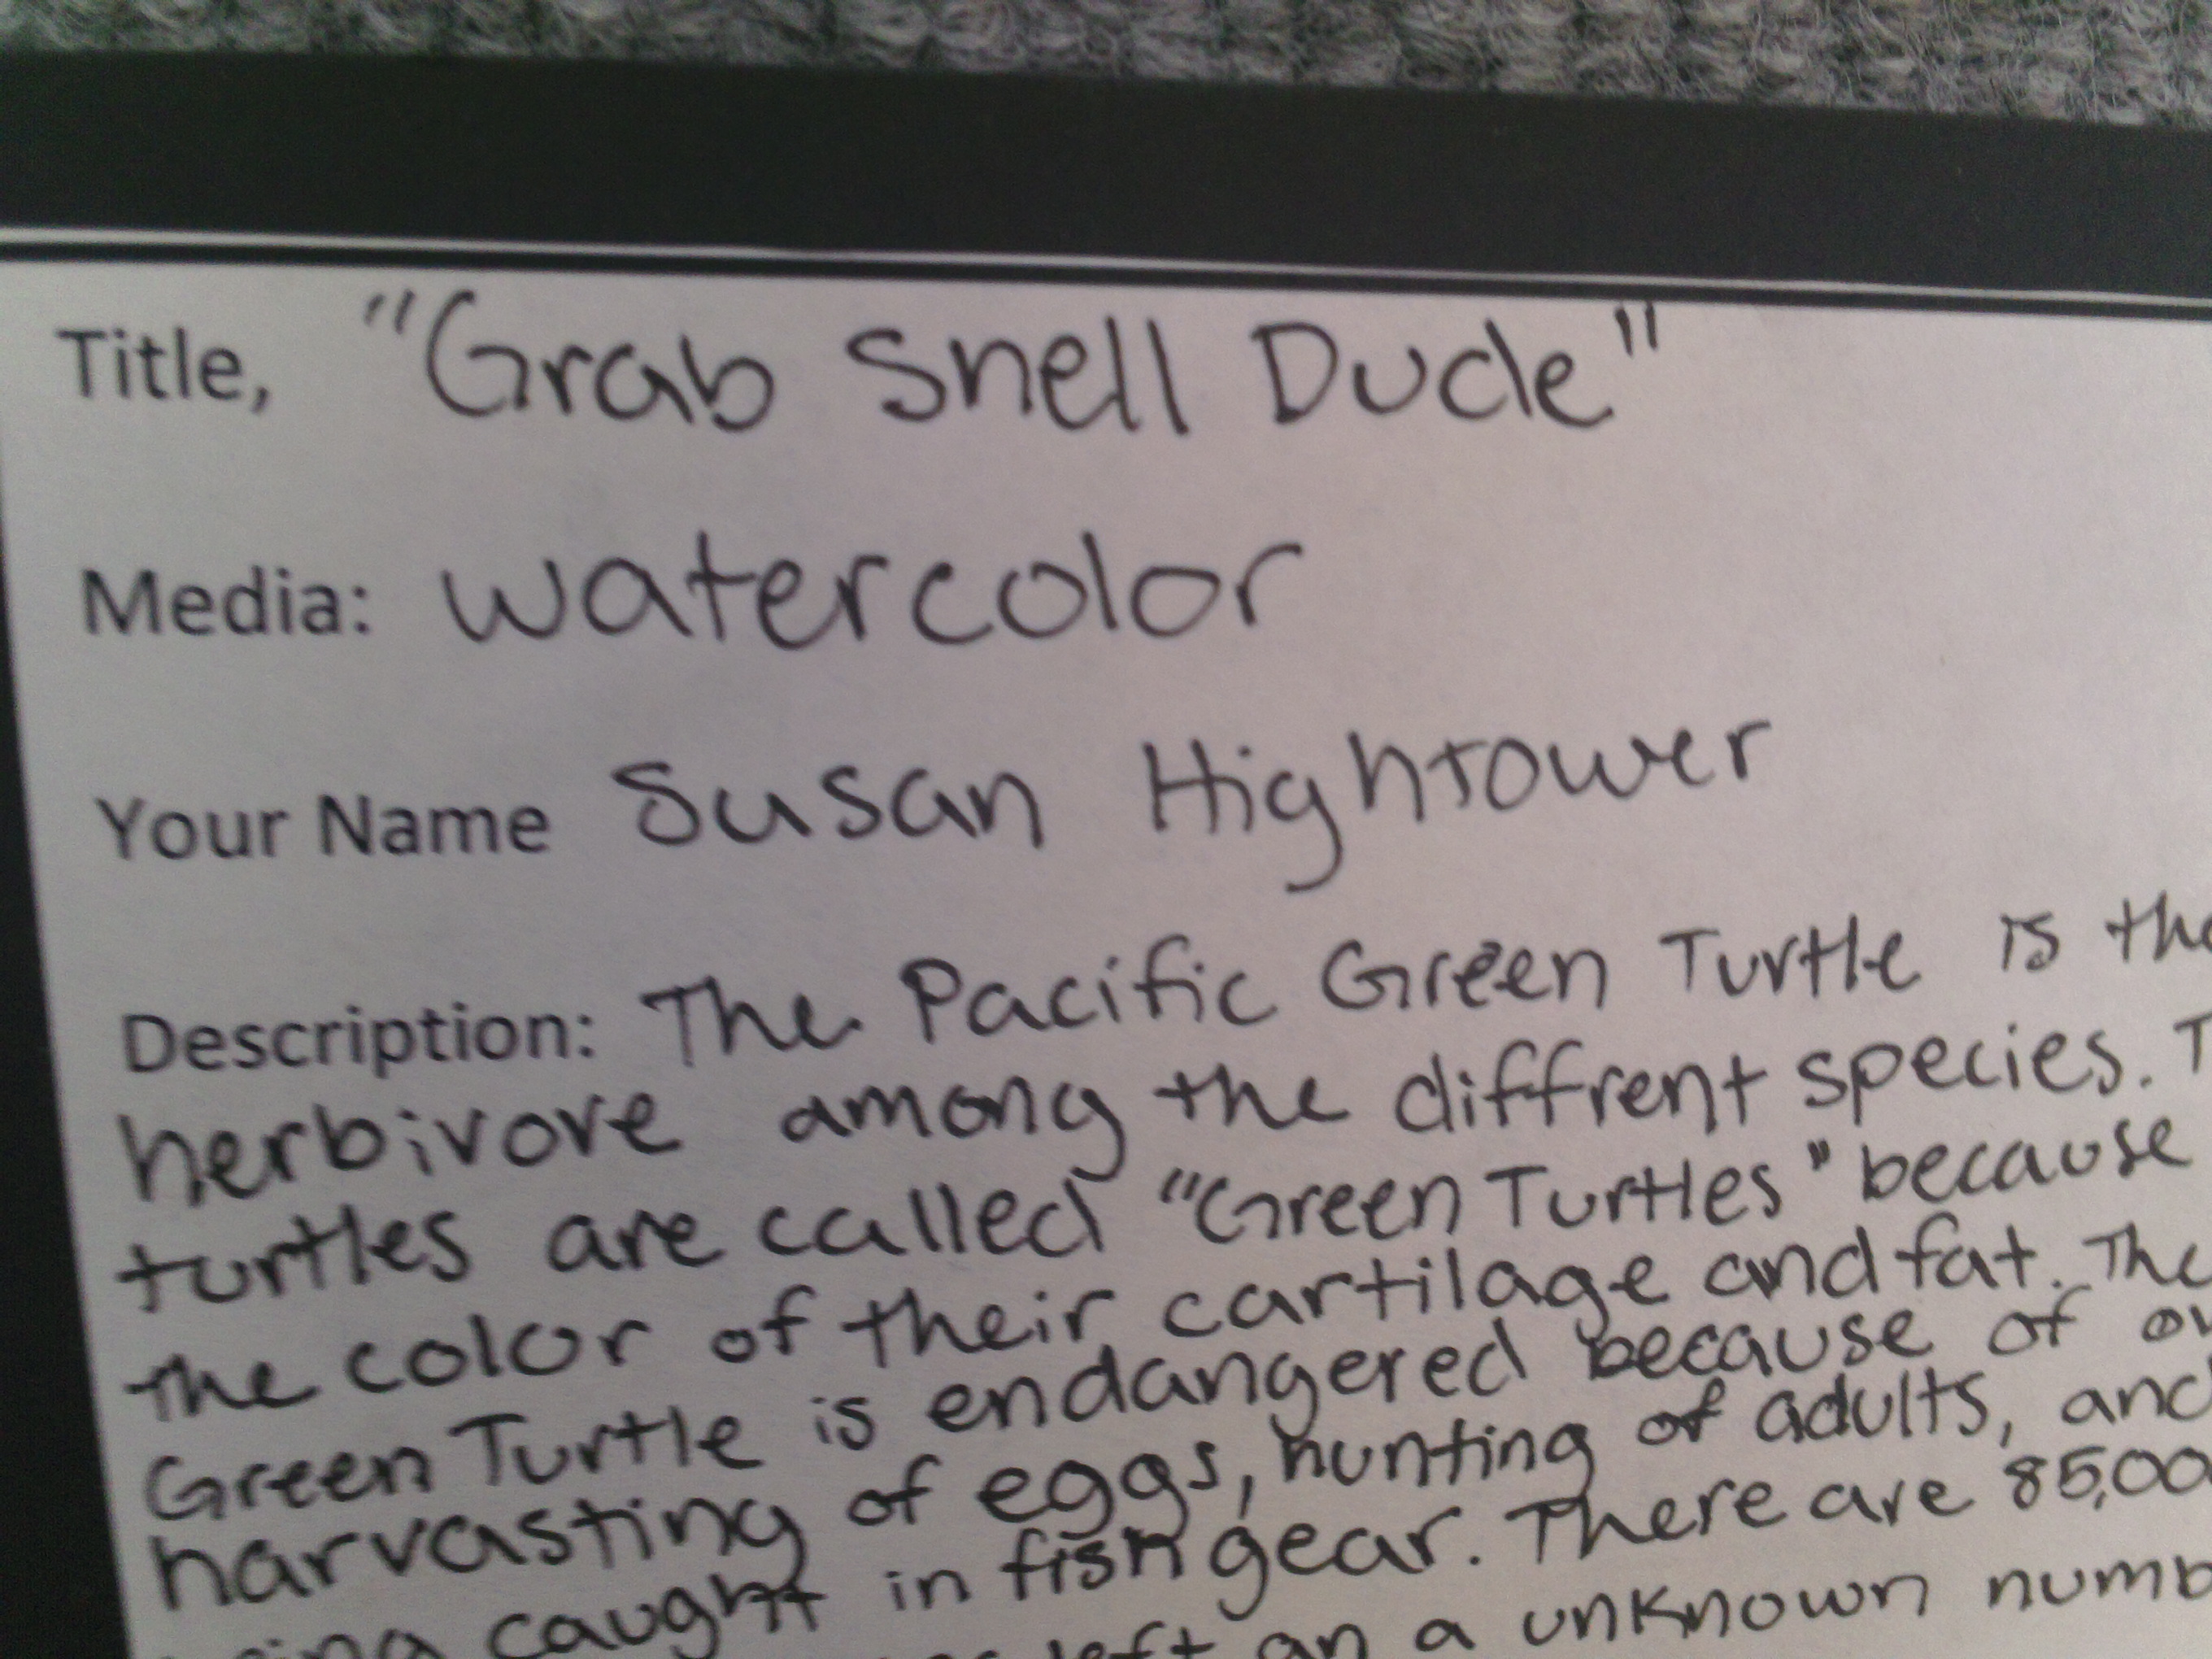 Title, "Grab Shell Dude"
Media: watercolor
Your Name Susan Hightower
Description: The Pacific Green Turtle is the
herbivore among the diffrent species. T
turtles are called "Green Turtles" because
the color of their cartilage and fat. The
Green Turtle is endangered because of ov
harvasting of eggs, hunting of adults, and
being caught in fish gear. There are 85,00
left an a unknown numb